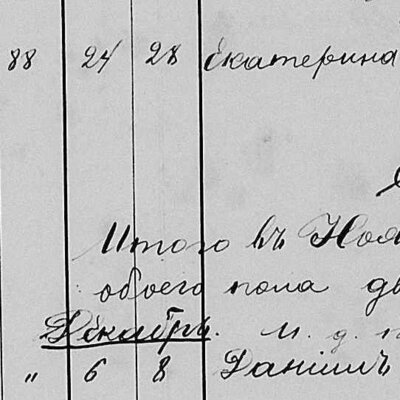 88 24 28 Екатерина
Итого въ Ноя
обоего пола дв
Декабрь. М. д. п
" 6 8 Даніилъ